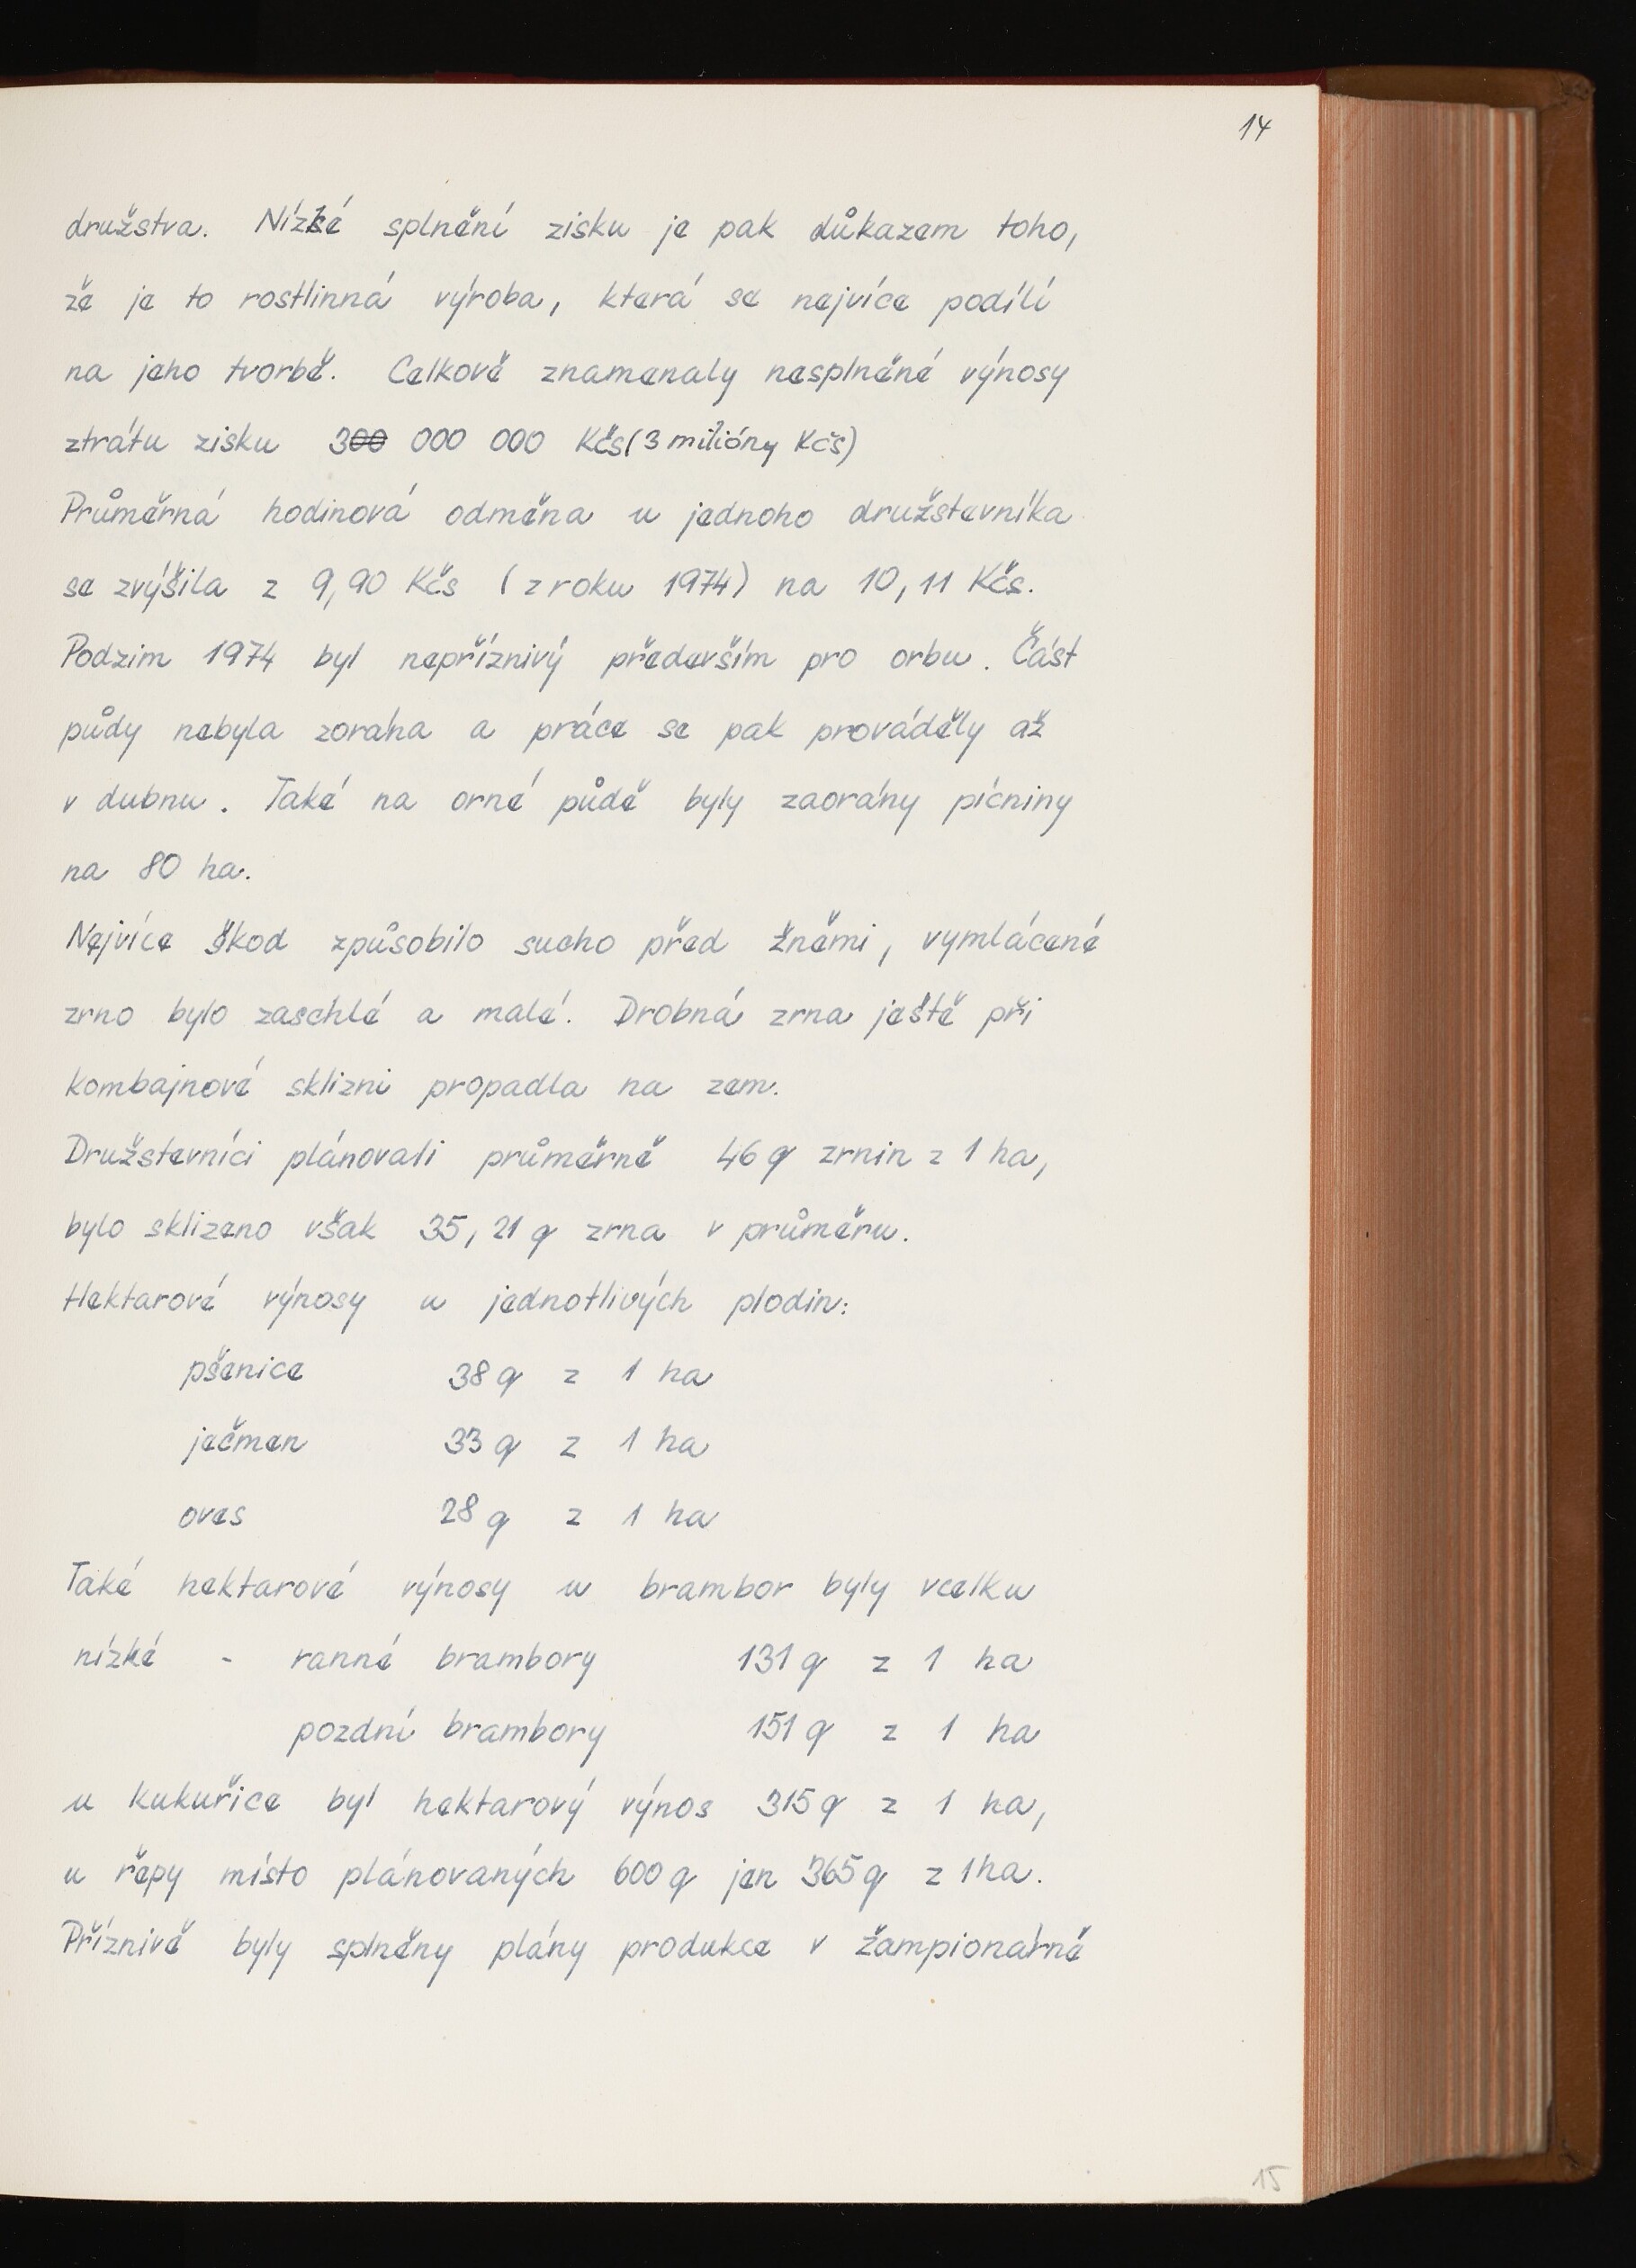 14
družstva. Nízké splnění zisku je pak důkazem toho,
že je to rostlinná výroba, která se nejvíce podílí
na jeho tvorbě. Celkově znamenaly nesplněné výnosy
ztrátu zisku 300 000 000 Kčs (3 milióny Kčs)
Průměrná hodinová odměna u jednoho družstevníka
se zvýšila z 9,90 Kčs (z roku 1974) na 10,11 Kčs.
Podzim 1974 byl nepříznivý především pro orbu. Část
půdy nebyla zorána a práce se pak prováděly až
v dubnu. Také na orné půdě byly zaorány pícniny
na 80 ha.
Nejvíce škod způsobilo sucho před žněmi, vymlácené
zrno bylo zaschlé a malé. Drobná zrna ještě při
kombajnové sklizni propadla na zem.
Družstevníci plánovali průměrně 46 q zrnin z 1 ha,
bylo sklizeno však 35,21 q zrna v průměru.
Hektarové výnosy u jednotlivých plodin:
pšenice 38 q z 1 ha
ječmen 33 q z 1 ha
oves 28 q z 1 ha
Také hektarové výnosy u brambor byly vcelku
nízké - ranné brambory 131 q z 1 ha
pozdní brambory 151 q z 1 ha
u kukuřice byl hektarový výnos 315 q z 1 ha,
u řepy místo plánovaných 600 q jen 365 q z 1 ha.
Příznivě byly splněny plány produkce v žampionárně
15